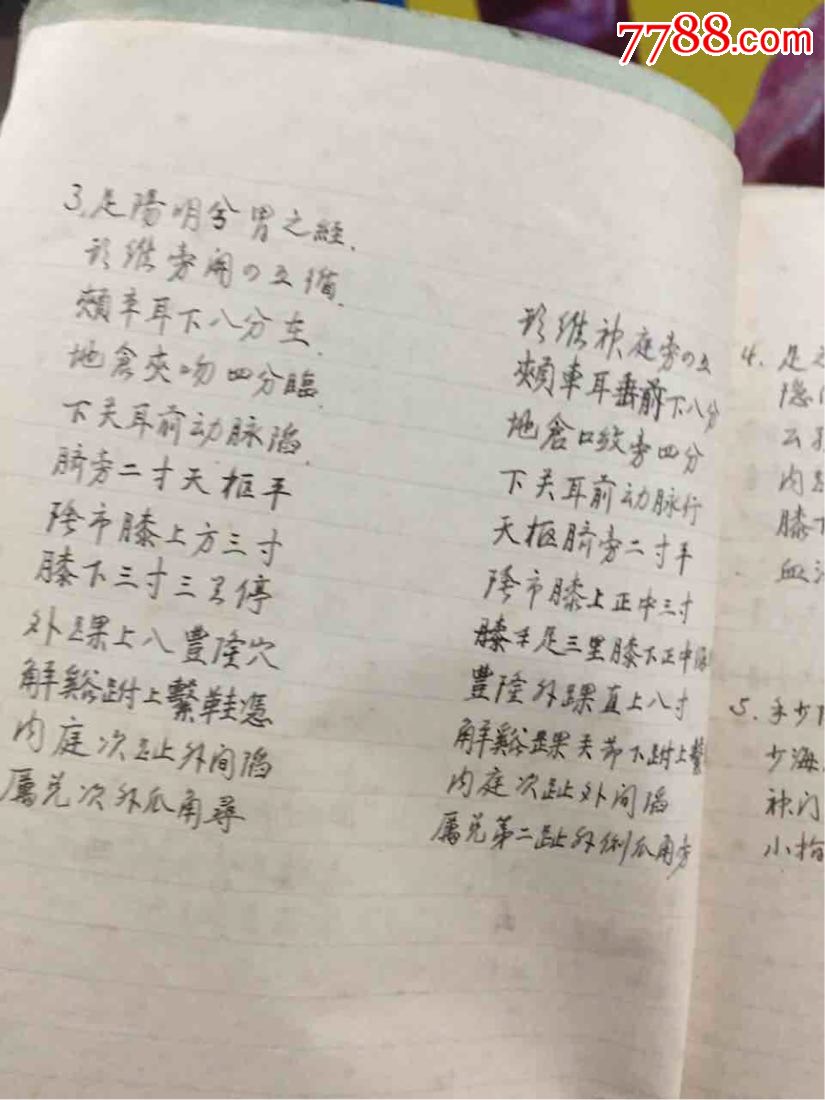 7788.com
3. 足陽明兮胃之經.
旁開の五循.
頰车耳下八分在.
地倉夾吻四分臨.
下关耳前动脉陷.
脐旁二寸天枢平
陰市膝上方三寸
膝下三寸三里停
外踝上八豐隆穴
解谿跗上繫鞋憑
内庭次趾外间陷
厲兑次外爪角尋
神庭旁の五
頰車耳垂前下八分
地倉口吻旁四分
下关耳前动脉行
天枢脐旁二寸平
陰市膝上正中三寸
足三里膝下正中
豐隆外踝直上八寸
解谿踝关节下跗上繫
内庭次趾外间陷
厲兑第二趾外側爪角旁
4. 足
隐
云
内
膝下
血
5. 手少
少海
神门
小指